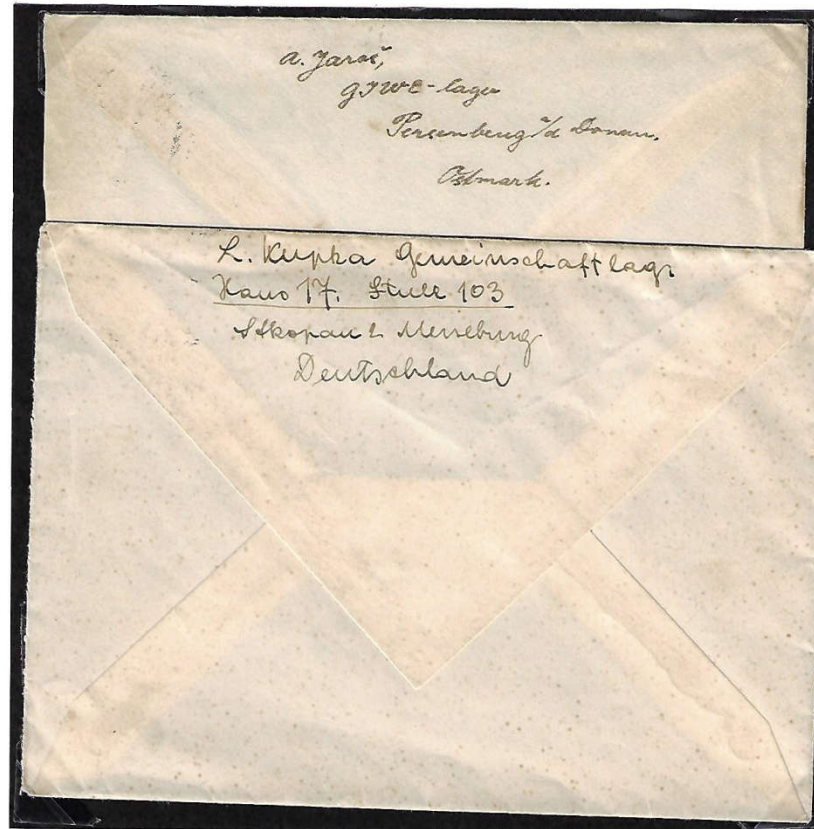 A. Jaroš,
GIWE-lager
Persenbeug a/d Donau.
Ostmark.
L. Kupka Gemeinschaftlagr
Haus 17. Stube 103
Merseburg
Deutschland